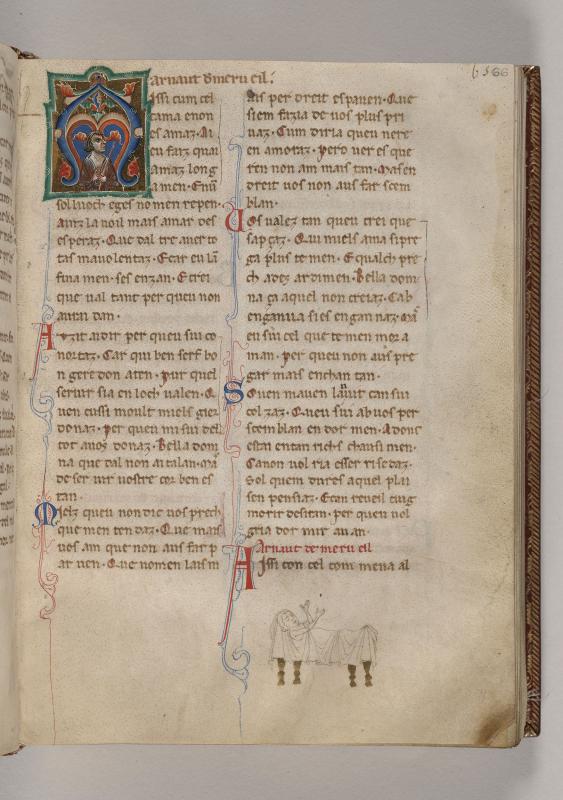 66
arnaut d merueil.
issi cum cel
cama enon
es amaz. Ai
eu faz quai
amaz long
amen. Enū
sol luoch eges no men repen.
Anz la uoil mais amar des
esperaz. Que dal tre auer to
taf mauolentaz. Ecar eu lā
fina men. ses enzan. E crei
que ual tant per queu non
aurai dan.
Auzit ai dir per queu sui co
nortaz. Car qui ben serf bo
n gere don aten. Pur quel
seruir sia en loch ualen. A
uen cussi moult miels gier
donaz. per queu mi sui del
tot auos donaz. Bella dom
na que dal non ai talan. mā
de ser uir uostre cor ben es
tan.
Mielz queu non dic uos prech
que men ten daz. Que mais
uos am que non aus far p
ar uen. Que nomen laism
ais per dreit espauen. Que
siem fazia de uos plus pri
uaz. Cum diria queu nere
en amoraz. pero uer es que
ren non am mais tan. Mas en
dreit uos non aus far sem
blan.
Uos ualez tan queu crei que
sap çaz. Qui miels ama sipre
ga plus te men. E qualch pre
ch adez ardimen. Bella dom
na ça aquel non creiaz. Cab
enganua sies engan naz. mā
eu sui cel que te men mor a
man. per queu non aus pre
gar mais en chan tan.
Souen mauen la nuit can sui
col zaz. Queu sui ab uos per
semblan en dor men. Adonc
estai en tan richs chausi men.
Canon uol ria esser rise daz.
Sol quem dures aquel plai
sen pensiaz. E can reueil cuig
morir desiran. per queu uol
gria dor mir un an.
Arnaut de meru eil
Aissi con cel com mena al